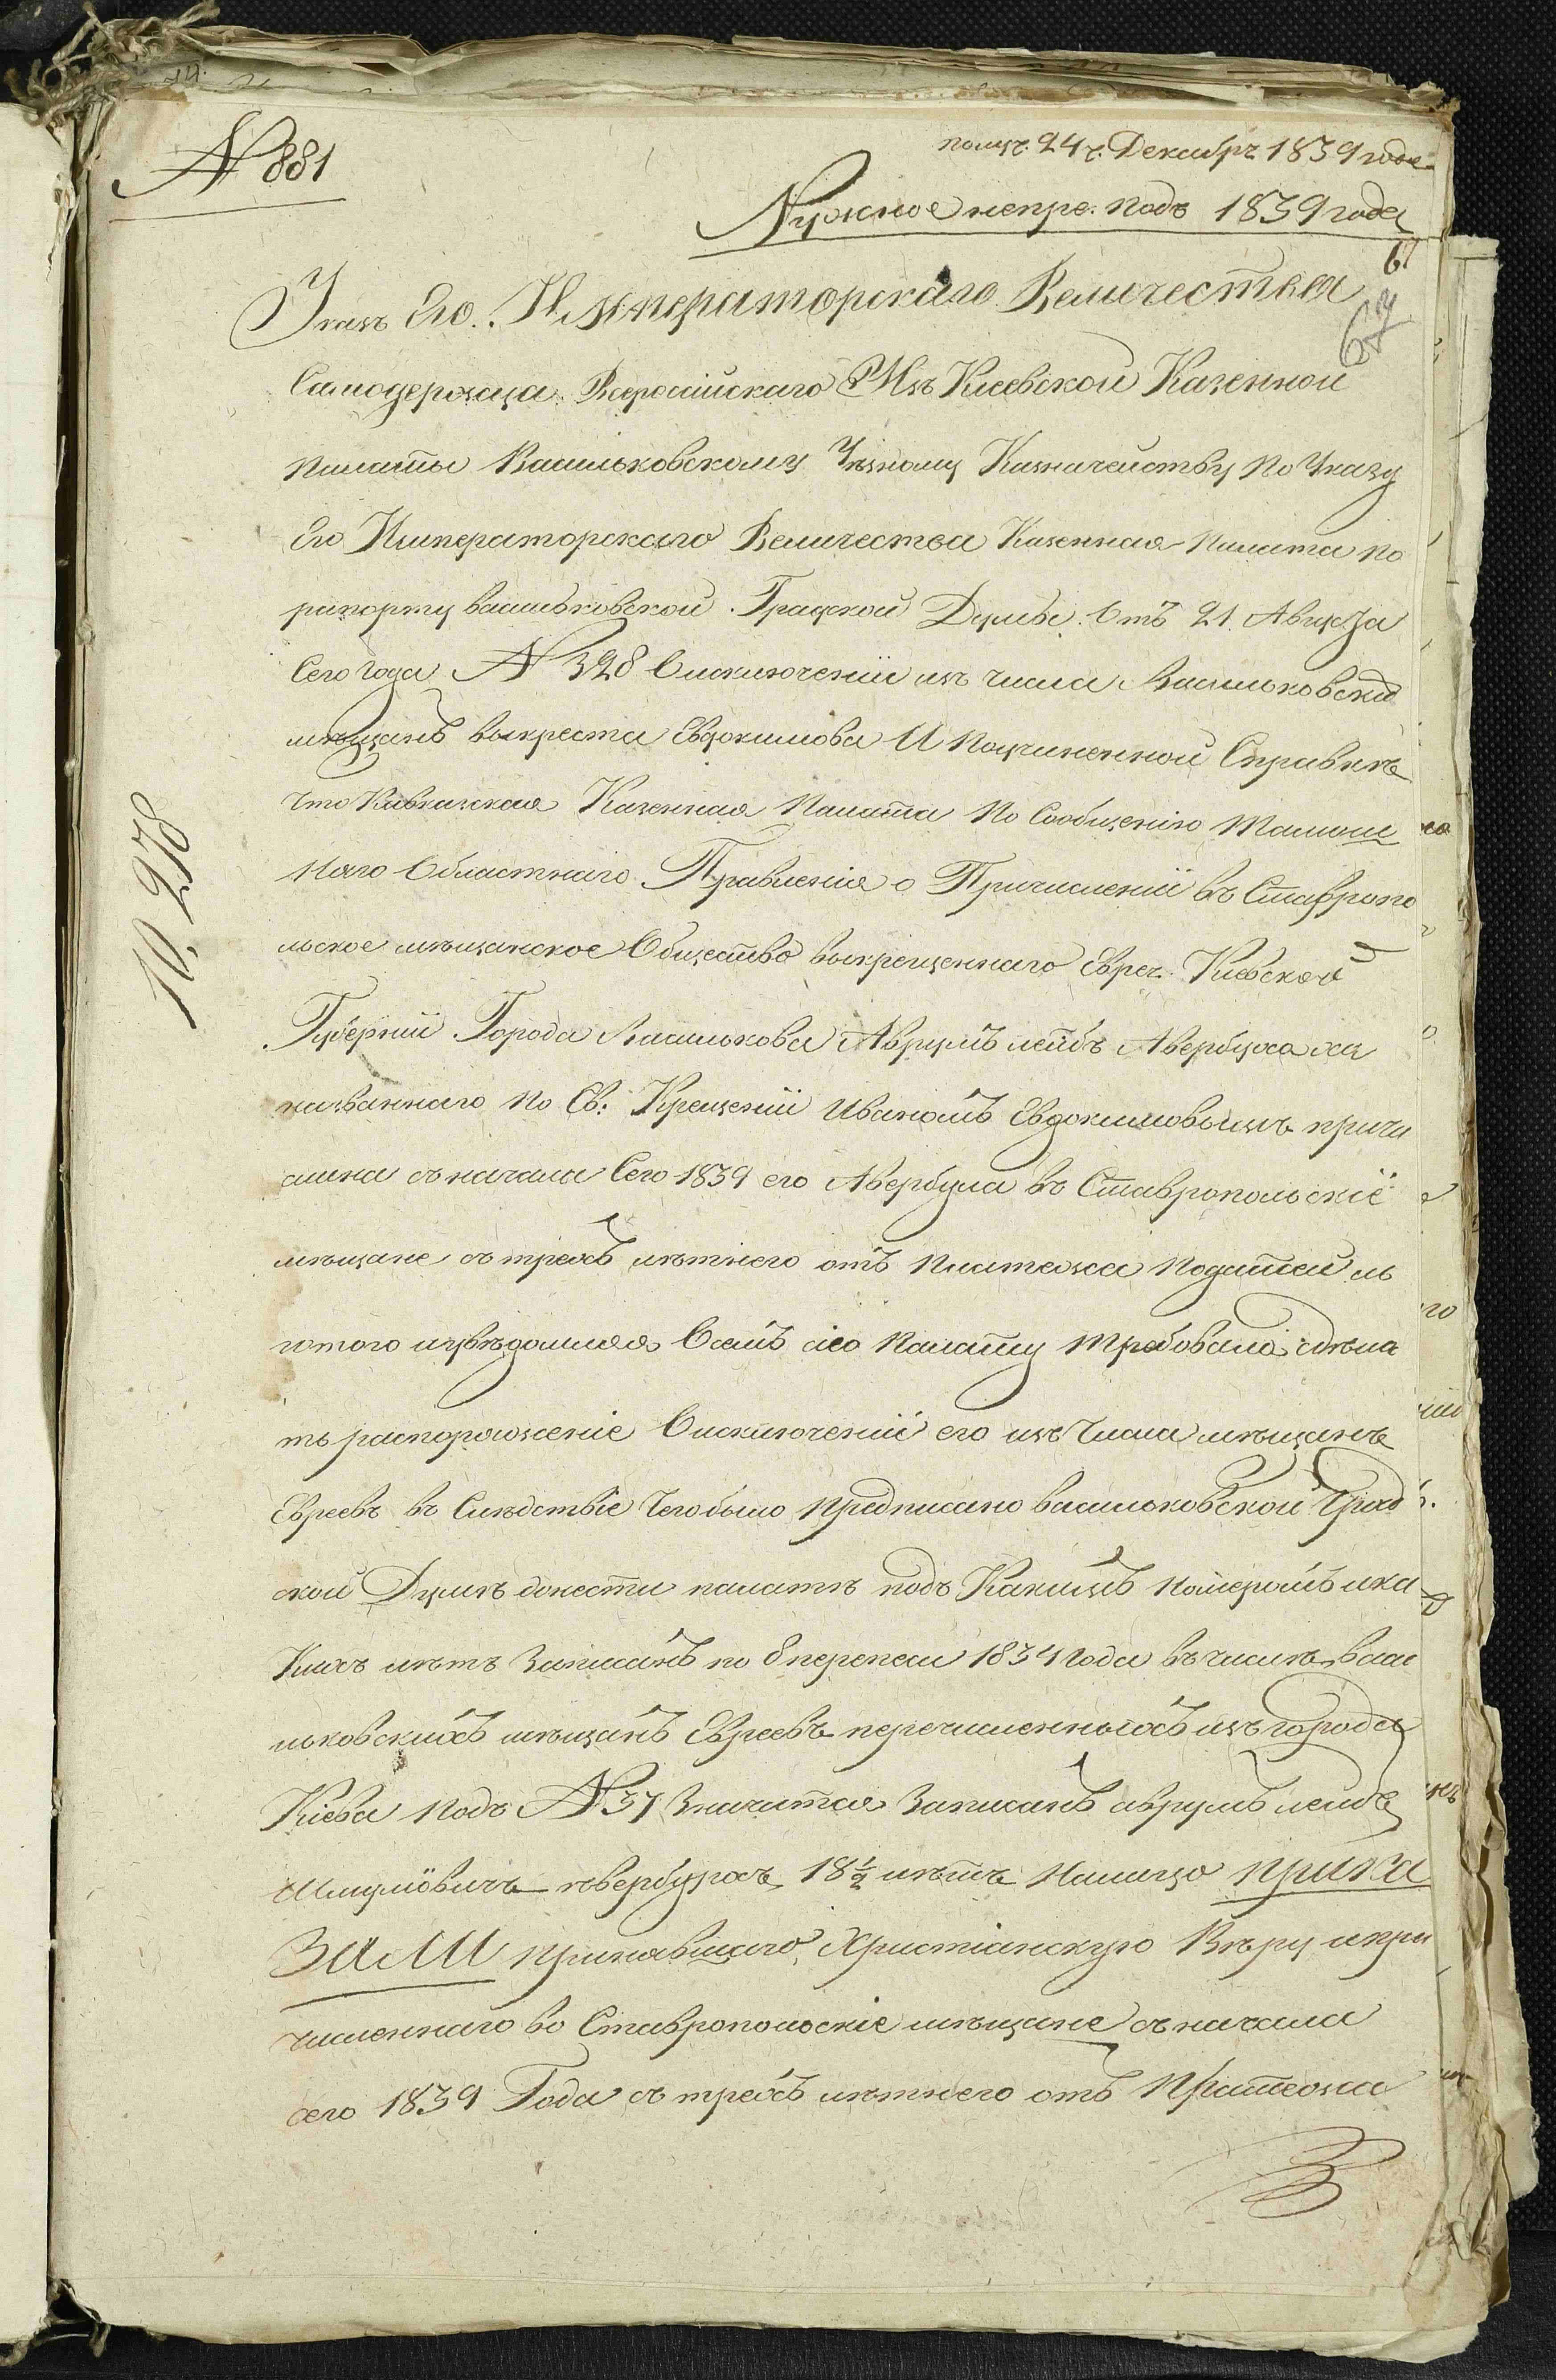 № 881
получ. 24 ч. Декабръ 1839 года
Нужное непре. подъ 1839 года
67
67
Указъ Его Императорскаго Величества
Самодержца Всеросiйскаго Изъ Киевской Казенной
палаты Васильковскому Уезному Казначейству По Указу
Его Императорскаго Величества Казенная Палата по
рапорту васильковской Градской Думы Отъ 21 Августа
Сего Года № 328 Оисключенiи изъ числа Васильковски
мѣщанъ выкреста Евдокимова И Поучиненной Справкѣ
Что Кавказская Казенная Палата По Сообщенiю Тамош
няго Областнаго Правленiя о Причисленiи въ Ставропо
льское мѣщанское Общество выкрещеннаго Еврея Киевской
Губернiи Города Василькова Аврумъ лейбъ Авербуха
названнаго по Св: Крещенiи Иваномъ Евдокимовымъ причи
слила съ начала Сего 1839 его Авербуха въ Ставропольскiе
мѣщане съ трехъ лѣтнего отъ платежа податей ль
готого изувѣдомляя Осемъ сiю Палату требовала сдѣла
ть распоряженiе Оисключенiи его изъ Числа мѣщанъ
Евреевъ въ Слѣдствiе Чего было предписано васильковской Град
ской Думѣ донести палатѣ подъ Какимъ Номеромъ ика
Кихъ лѣтъ Записанъ по 8 переписи 1834 Года въ числѣ васи
льковскихъ мѣщанъ Евреевъ перечисленныхъ изъ города
Кiева Подъ № 37 Значится Записанъ аврумъ лейбъ
Шмулiовичъ авербухъ 18½ лѣтъ Налицо прика
зали принявшаго Христiанскую Вѣру ипри
численнаго во Ставропольскiе мѣщане съ начала
сего 1839 Года съ трехъ лѣтнего отъ Платежа
10,278